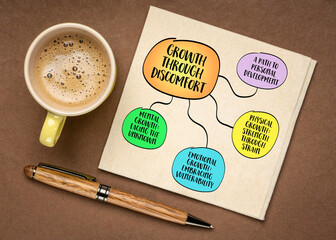 GROWTH
THROUGH
DISCOMFORT
A PATH TO
PERSONAL
DEVELOPMENT
MENTAL
GROWTH:
FACING THE
UNKNOWN
PHYSICAL
GROWTH:
STRENGTH
THROUGH
STRAIN
EMOTIONAL
GROWTH:
EMBRACING
VULNERABILITY